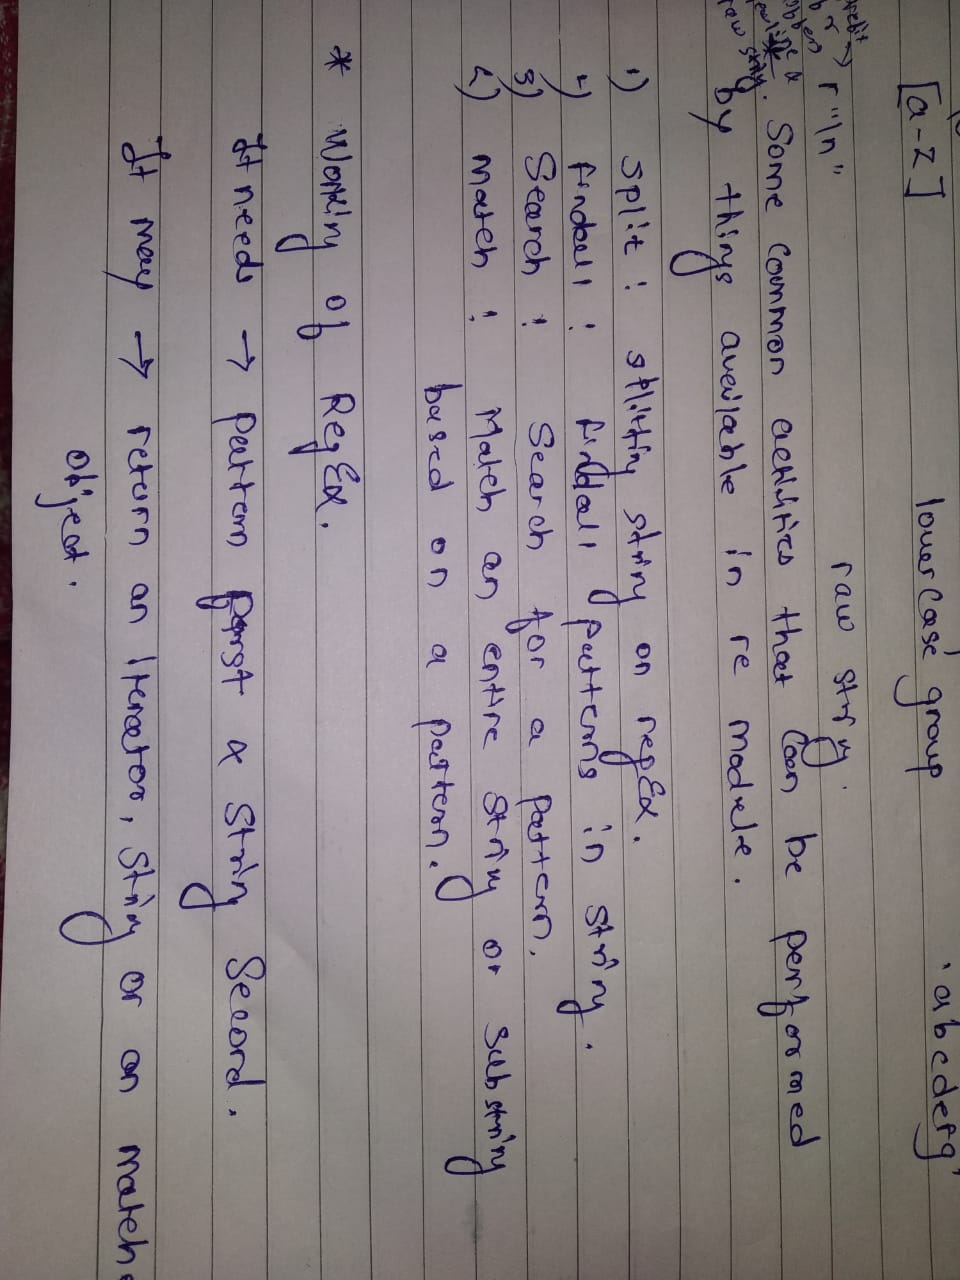 [a-z] lowercase group 'abcdefg'
r "\n" raw string.
Some common activities that can be performed
by things available in re module.
1) split : splitting string on regEx.
2) findall : findall patterns in string.
3) Search : Search for a pattern.
4) match : Match an entire string or substring
based on a pattern.
* Working of RegEx.
It needs → pattern first & string second.
It may → return an iterator, string or an match
object.